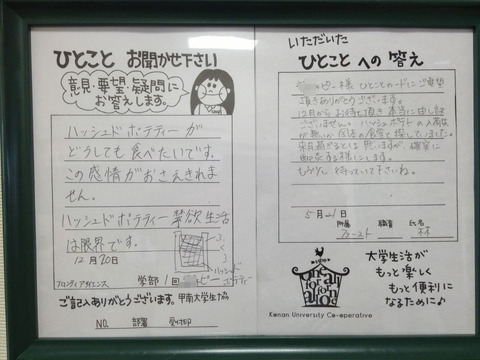 ひとこと お聞かせ下さい
意見・要望・疑問に
お答えします。
ハッシュドポテティーが
どうしても食べたいです。
この感情がおさえきれま
せん。
ハッシュドポテティー禁欲生活
は限界です。
12月20日
ハッシュド
ポテティー
フロンティアサイエンス
学部 1回
ピー
ご記入ありがとうございます。甲南大学生協
NO. 部署 受付印
いただいた
ひとこと への 答え
ピー様 ひとことカードにご要望
頂きありがとうございます。
12月からお待ち頂き本当に申し訳
ございません。ハッシュポテトの入荷
が無いか
探していました。
来月
とは思いますが、確実に
販売する様にします。
もう少し待っていて下さいね。
5月21日
所属 職官 氏名
林
one for all
all for one
大学生活が
もっと楽しく
もっと便利に
なるために♪
Konan University Co-operative